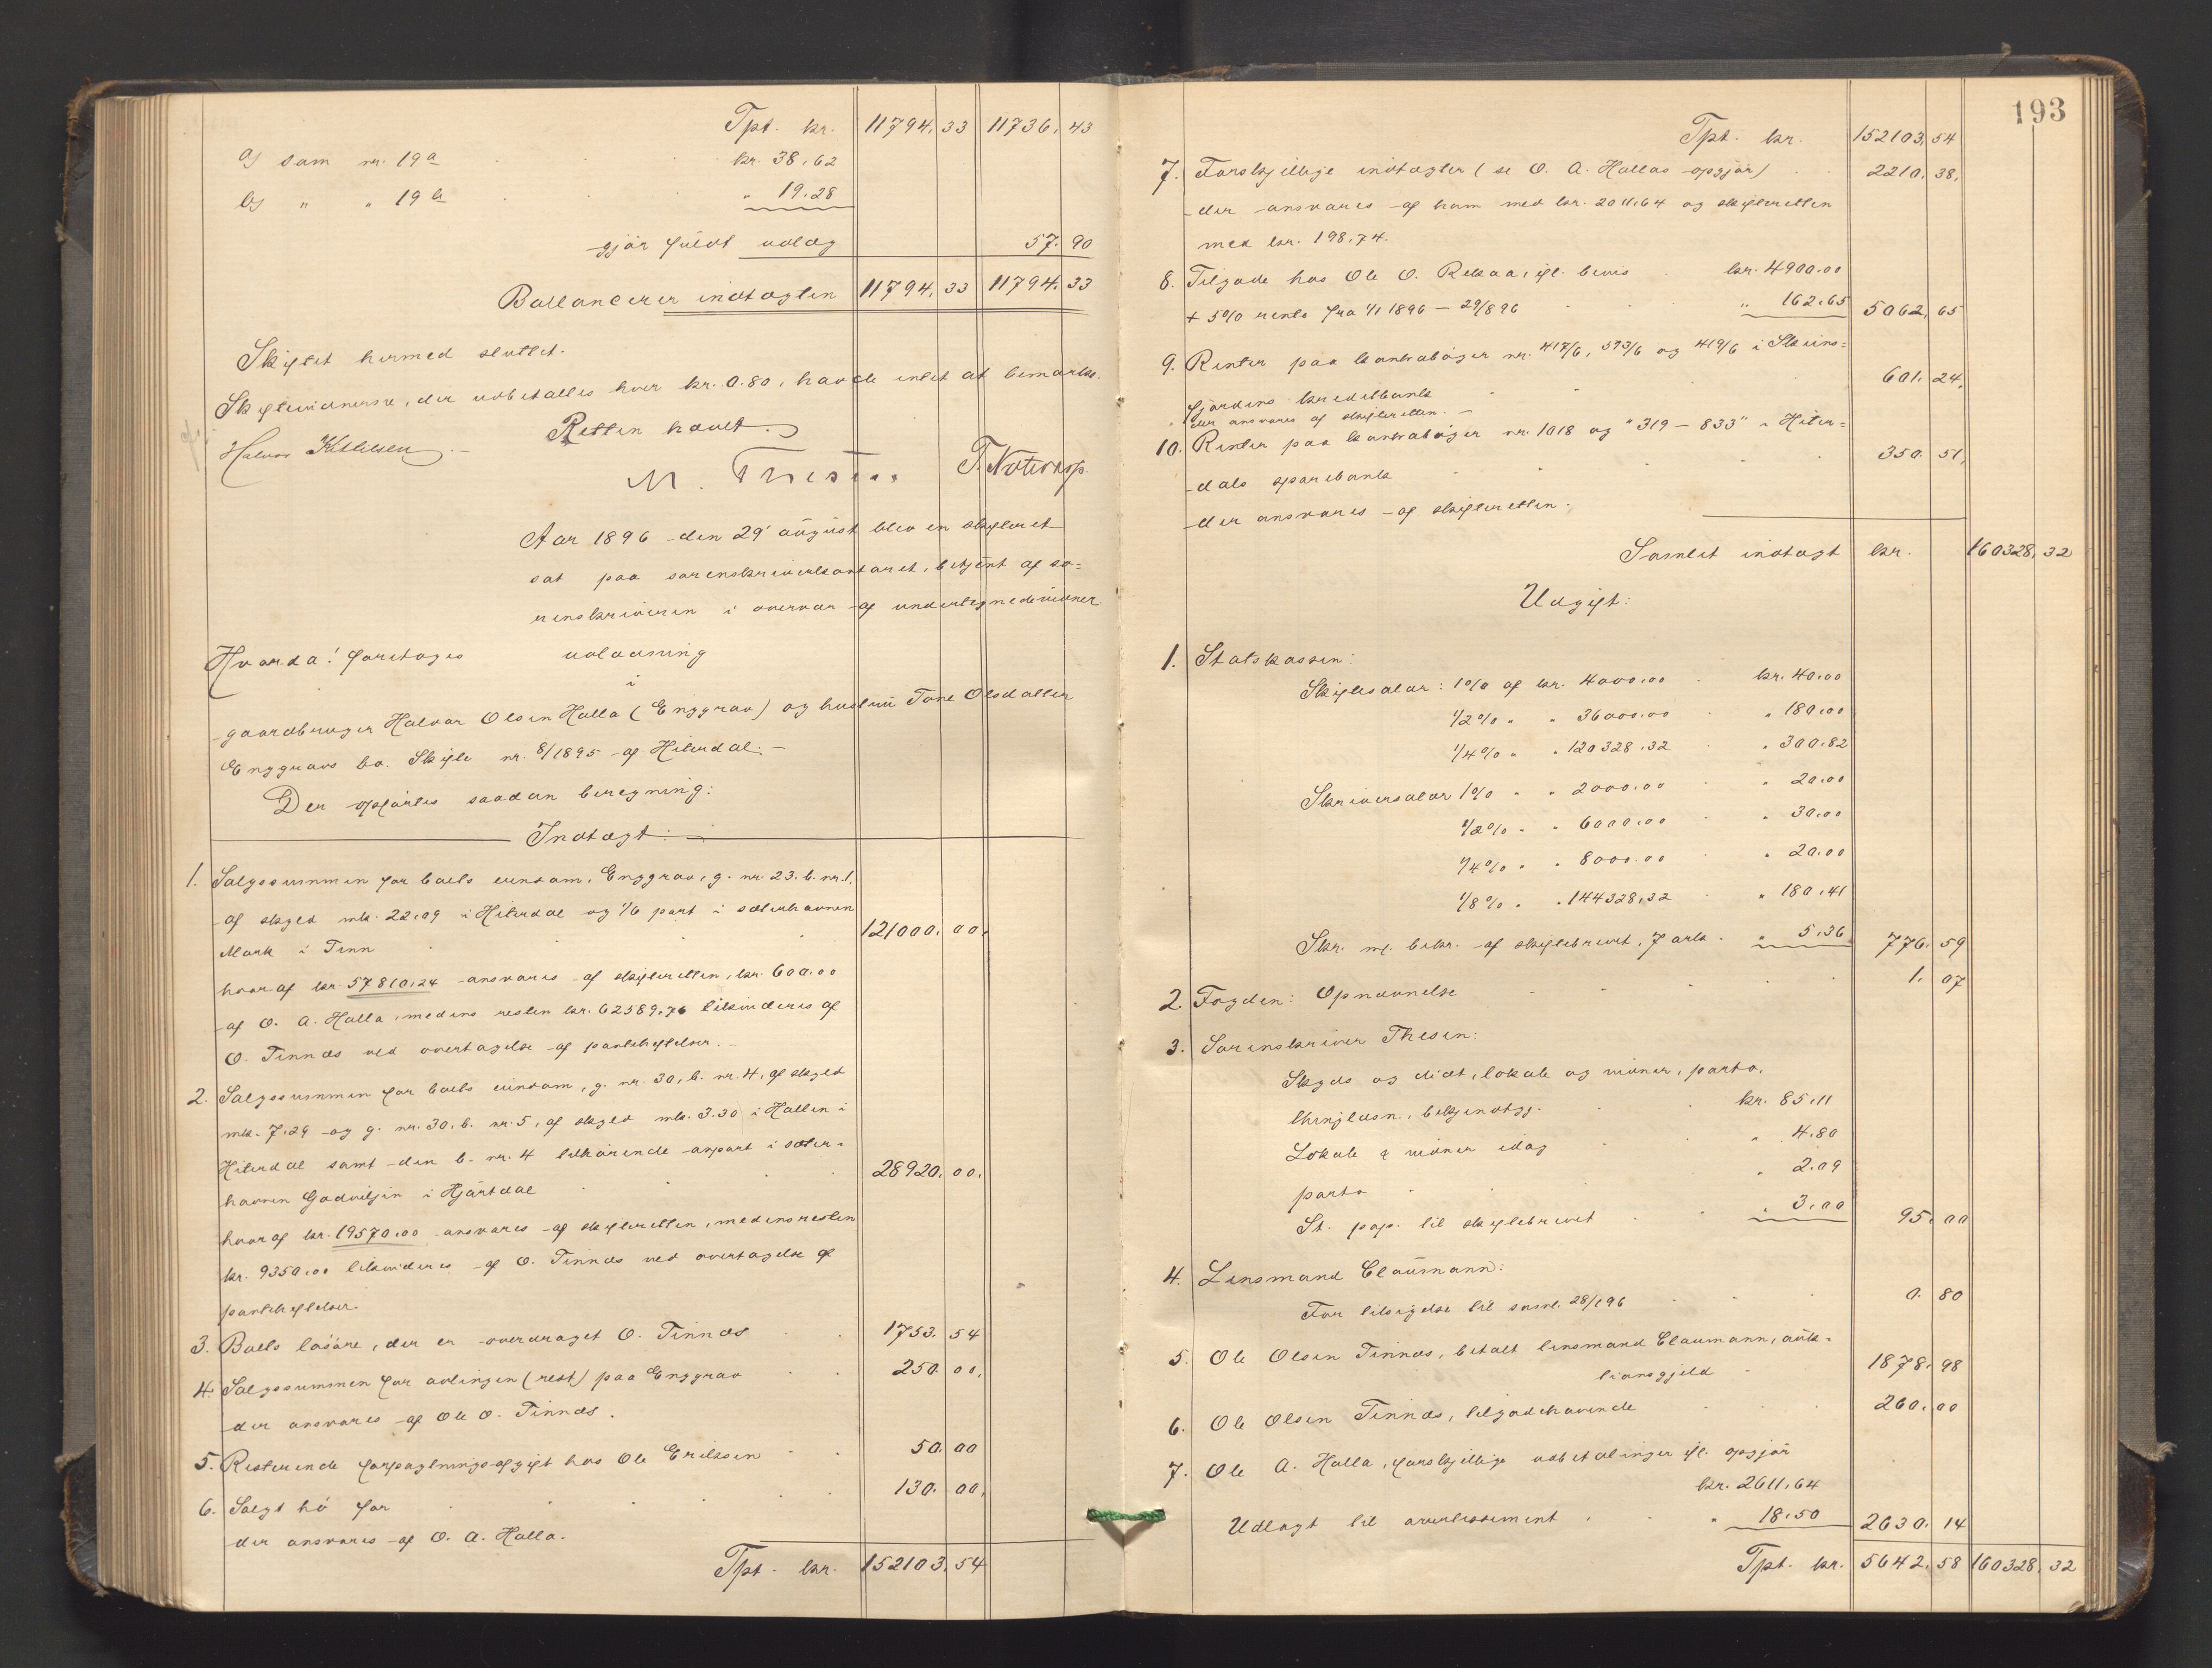 Tpt. kr. 11794,33 11736,43
a) som nr. 19a kr. 38,62
b) " " 19b " 19.28
gjør fuldt udlæg 57.90
Ballancerer indtægten 11794.33 11794.33
Skiftet hermed sluttet.
Skiftevidnerne, der udbetaltes hver kr. 0.80, havde intet at bemærke.
Retten hævet.
Halvor Kittilsen
M. Thesen T. Noterup
Aar 1896 den 29 august blev en skifteret
sat paa sorenskriverkontoret, betjent af so=
renskriveren i overvær af undertegnede vidner.
Hvorda! foretoges udlodning
i
gaardbruger Halvor Olsen Halla (Enggrav) og hustru Tone Olsdatter
Enggravs bo. Skifte nr. 8/1895 af Hiterdal.-
Der opførtes saadan beregning:
Indtægt:
1. Salgssummen for boets eiendom, Enggrav, g. nr. 23. b. nr. 1.
af skyld mk. 22.09 i Hiterdal og 1/6 part i sæterhavnen
Mark i Tinn 121000.00.
hvoraf kr. 57810.24 ansvares af skifteretten, kr. 600.00
af O. A. Halla, medens resten kr. 62589.76 likvideres af
O. Tinnæs ved overtagelse af pantehæftelser.-
2. Salgssummen for boets eiendom, g. nr. 30, b. nr. 4, af skyld
mk. 7.29 og g. nr. 30. b. nr. 5, af skyld mk. 3.30 i Hallen i
Hiterdal samt den b. nr. 4 tilhørende anpart i sæter=
havnen Godviljen i Hjartdal 28920.00.
hvoraf kr. 19570.00 ansvares af skifteretten, medens resten
kr. 9350.00 likvideres af O. Tinnæs ved overtagelse af
pantehæftelser.
3. Boets løsøre, der er overdraget O. Tinnæs 1753.54
4. Salgssummen for avlingen (rest) paa Enggrav 250.00.
der ansvares af Ole O. Tinnæs.
5. Resterende forpagtningsafgift hos Ole Eriksen 50.00
6. Solgt hø for 130.00.
der ansvares af O. A. Halla.
Tpt. kr. 152103.54
193
Tpt. kr. 152103.54
7. Forskjellige indtægter (se O. A. Hallas opgjør) 2210.38.
der ansvares af ham med kr. 2011.64 og skifteretten
med kr. 198.74.
8. Tilgode hos Ole O. Rekaa, ifl. bevis kr. 4900.00
+ 5% rente fra 1/1 1896 - 29/8 96 " 162.65 5062.65
9. Renter paa kontrabøger nr. 417/6, 593/6 og 419/6 i Skiens=
fjordens kreditbank 601.24.
der ansvares af skifteretten.-
10. Renter paa kontrabøger nr. 1018 og "319-833" i Hiter=
dals sparebank 350.51.
der ansvares af skifteretten.
Samlet indtægt kr. 160328.32
Udgift:
1. Statskassen:
Skiftesalær: 1% af kr. 4000.00 kr. 40.00
1/2% " " 36000.00 " 180.00
1/4% " " 120328.32 " 300.82
Skriversalær 1% " " 2000.00 " 20.00
1/2% " " 6000.00 " 30.00
1/4% " " 8000.00 " 20.00
1/8% " " 144328.32 " 180.41
Skr. m. bekr. af skiftebrevet, 7 ark " 5.36 776.59
2. Fogden: Opnævnelse 1.07
3. Sorenskriver Thesen:
Skyds og diæt, lokale og vidner, porto,
thinglæsn., bekjendtg. kr. 85.11
Lokale & vidner idag " 4.80
porto " 2.09
St. pap. til skiftebrevet " 3.00 95.00
4. Lensmand Claumann:
For tilsigelse til saml. 28/1 96 0.80
5. Ole Olsen Tinnæs, betalt lensmand Claumann, auk=
tionsgjeld 1878.98
6. Ole Olsen Tinnæs, tilgodehavende 260.00
7. Ole A. Halla, forskjellige udbetalinger ifl. opgjør
kr. 2611.64
Udlagt til avertissement " 18.50 2630.14
Tpt. kr. 5642.58 160328.32